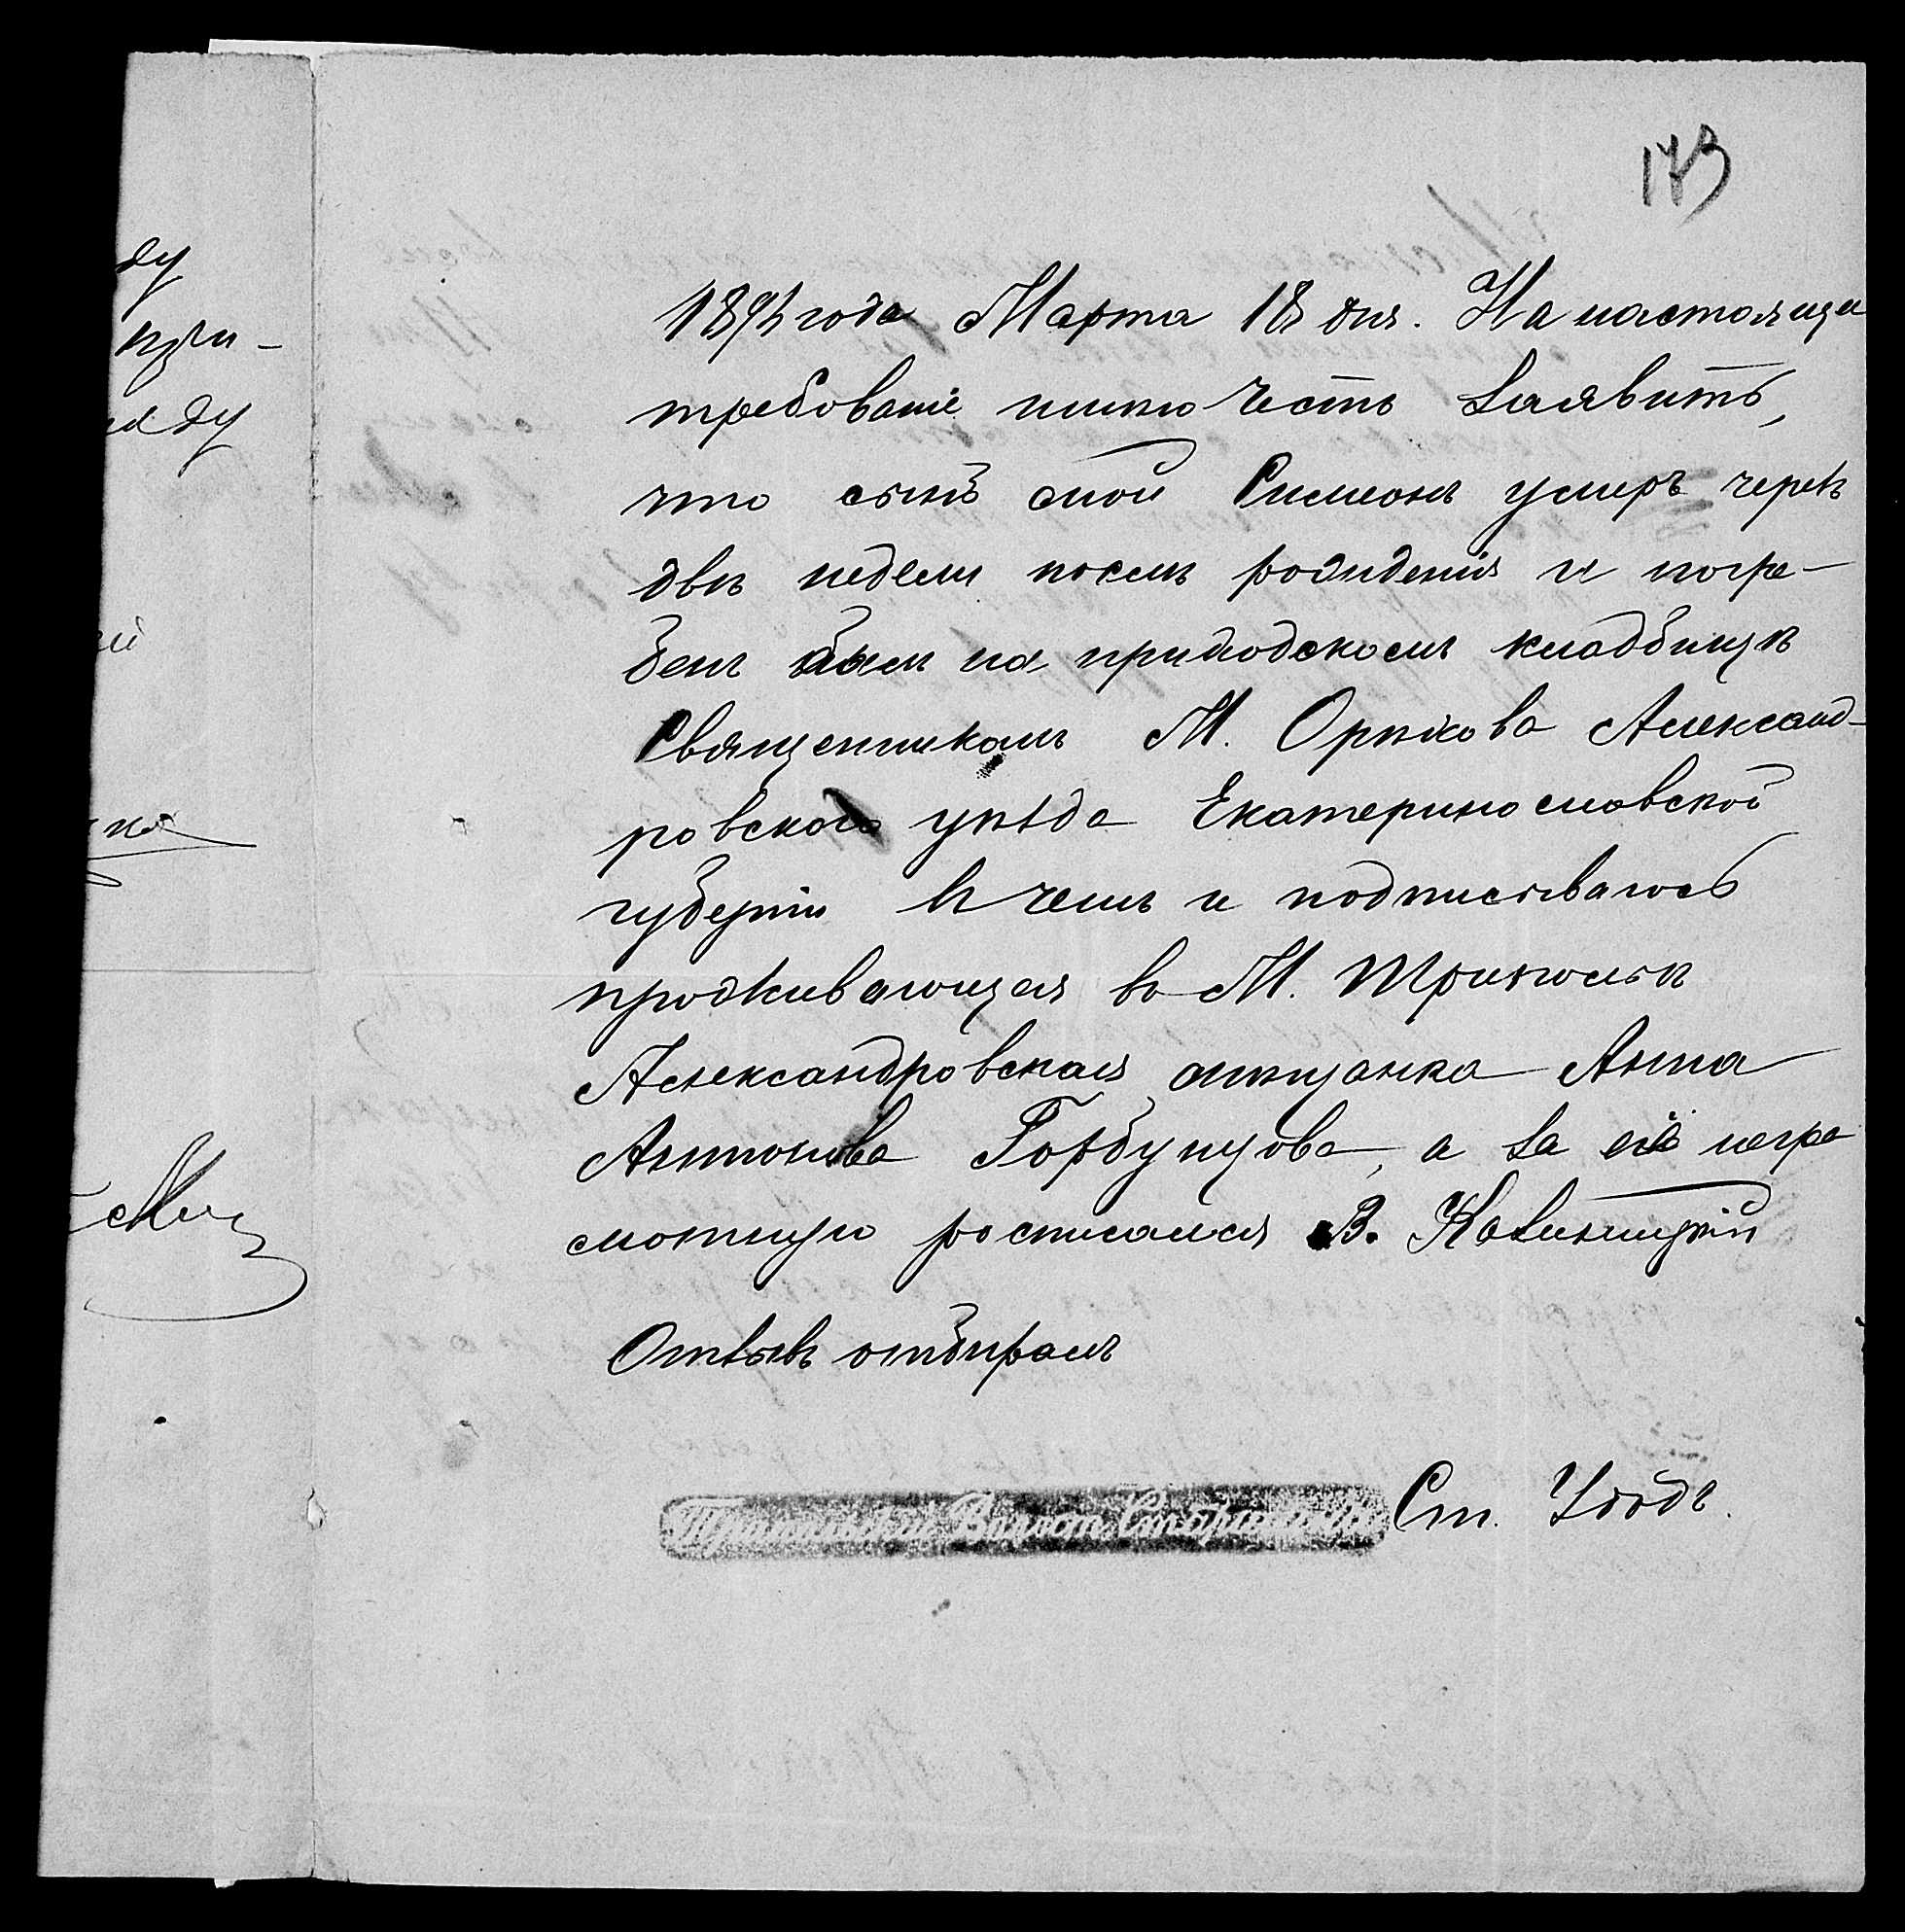 173
1894 года Марта 18 дня. На настояще
требованіе имею честь заявить,
что сынъ мой Симеонъ умеръ черезъ
двѣ недели послѣ рождденія и погре-
бен был на приходском кладбищѣ
Священникомъ М. Орѣхова Александ-
ровского уѣзда Екатеринославской
губерніи в чемъ и подписываюсь
проживающая в М. Трикольѣ
Александровская мѣщанка Анна
Антонова Горбунцова, а за её негра
мотную росписался В. Казиницкій
Отзывъ отбиралъ
Волост. Старшина Ст.
ду
при-
ду